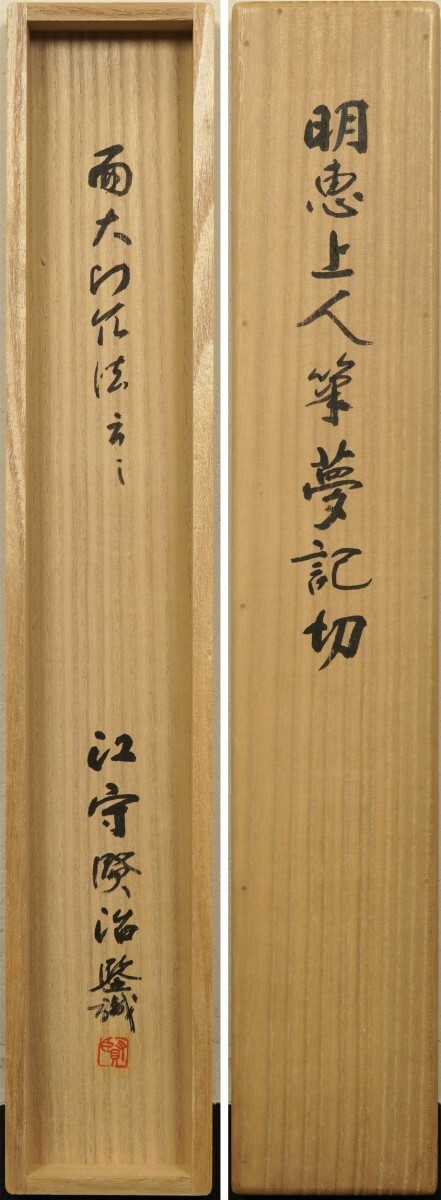 明恵上人筆夢記切
而大門作法云々
江守賢治鑒識